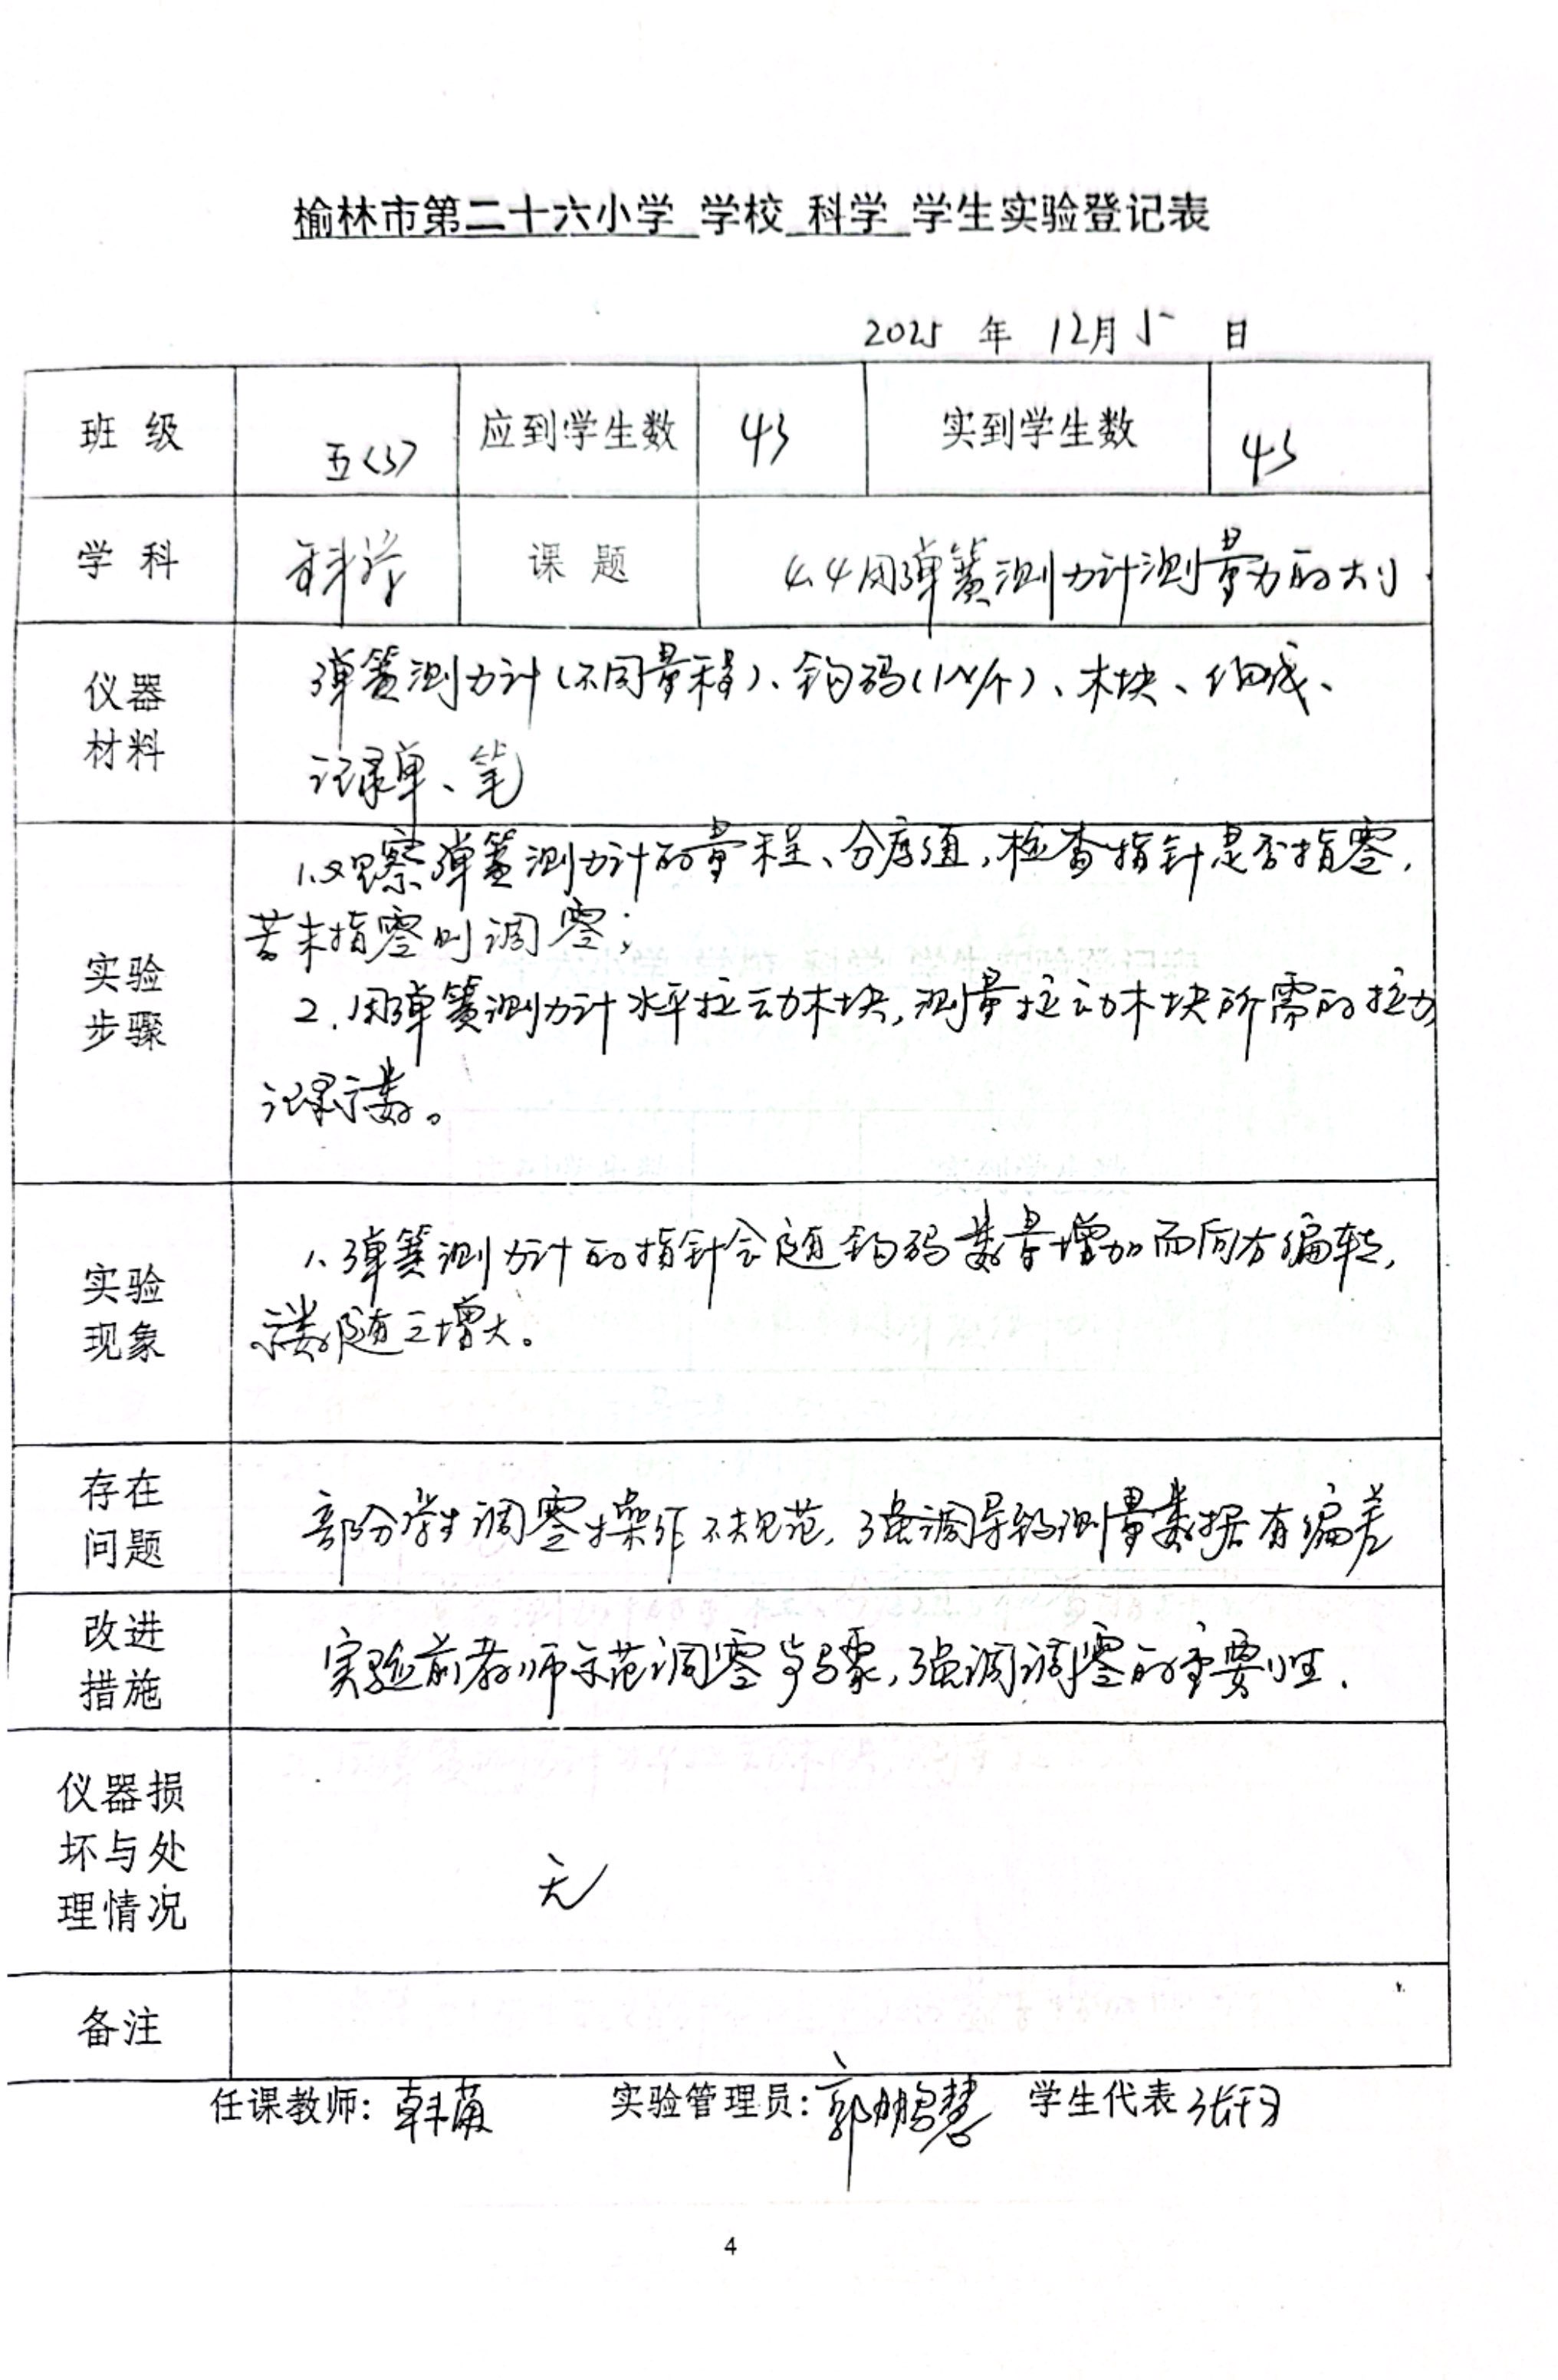 榆林市第二十六小学 学校 科学 学生实验登记表
2025 年 12月 5 日
班 级 五(3) 应到学生数 43 实到学生数 43
学 科 科学 课 题 4.4用弹簧测力计测量力的大小
仪器材料
弹簧测力计(不同量程)、钩码(1N/个)、木块、细线、
记录单、笔
实验步骤
1.观察弹簧测力计的量程、分度值,检查指针是否指零,
若未指零则调零;
2.用弹簧测力计水平拉动木块,测量拉动木块所需的拉力
记录示数。
实验现象
1.弹簧测力计的指针会随钩码数量增加而向方偏转,
示数随之增大。
存在问题
部分学生调零操作不规范,强调导致测量数据有偏差
改进措施
实验前教师示范调零步骤,强调调零的重要性.
仪器损坏与处理情况
无
备注
任课教师: 韩 实验管理员: 郭鹏慧 学生代表 张
4